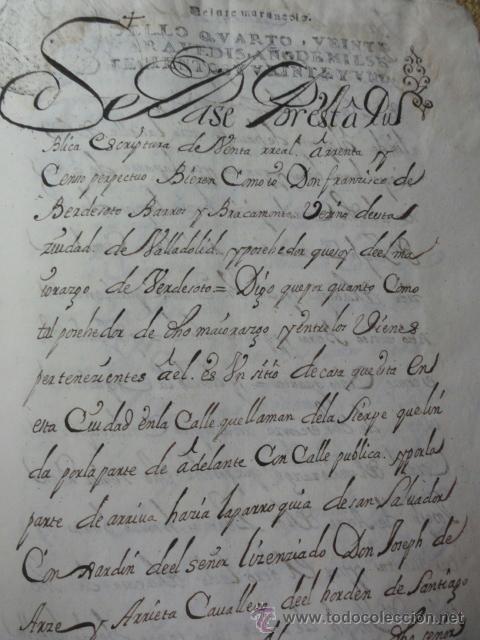 Veinte maravedis.
SELLO QVARTO, VEINTE
MARAVEDIS, AÑO DE MIL SE
TECIENTOS Y VEINTE Y VNO.
Sepase Por està Pu
blica Escriptura de Venta rreal â rrenta y
Censo perpectuo Bieren Como io Don franzisco de
Berdesoto Barros y Bracamonte Vezino de esta
ziudad de Valladolid y posehedor que soy de el ma
iorazgo de Verdesoto = Digo que por quanto Como
tal posehedor de dho maiorazgo y entre los Vienes
pertenezientes â el es Un sitio de casa que esta en
esta Ciudad en la Calle que llaman de la Sierpe que lin
da por la parte de âdelante Con Calle publica y por la
parte de arriva hazia la parroquia de san Salvador
Con Jardin de el señor lizenziado Don Joseph de
Arze y Arrieta Cavallero de el horden de Santiago
todocoleccion
www.todocoleccion.net